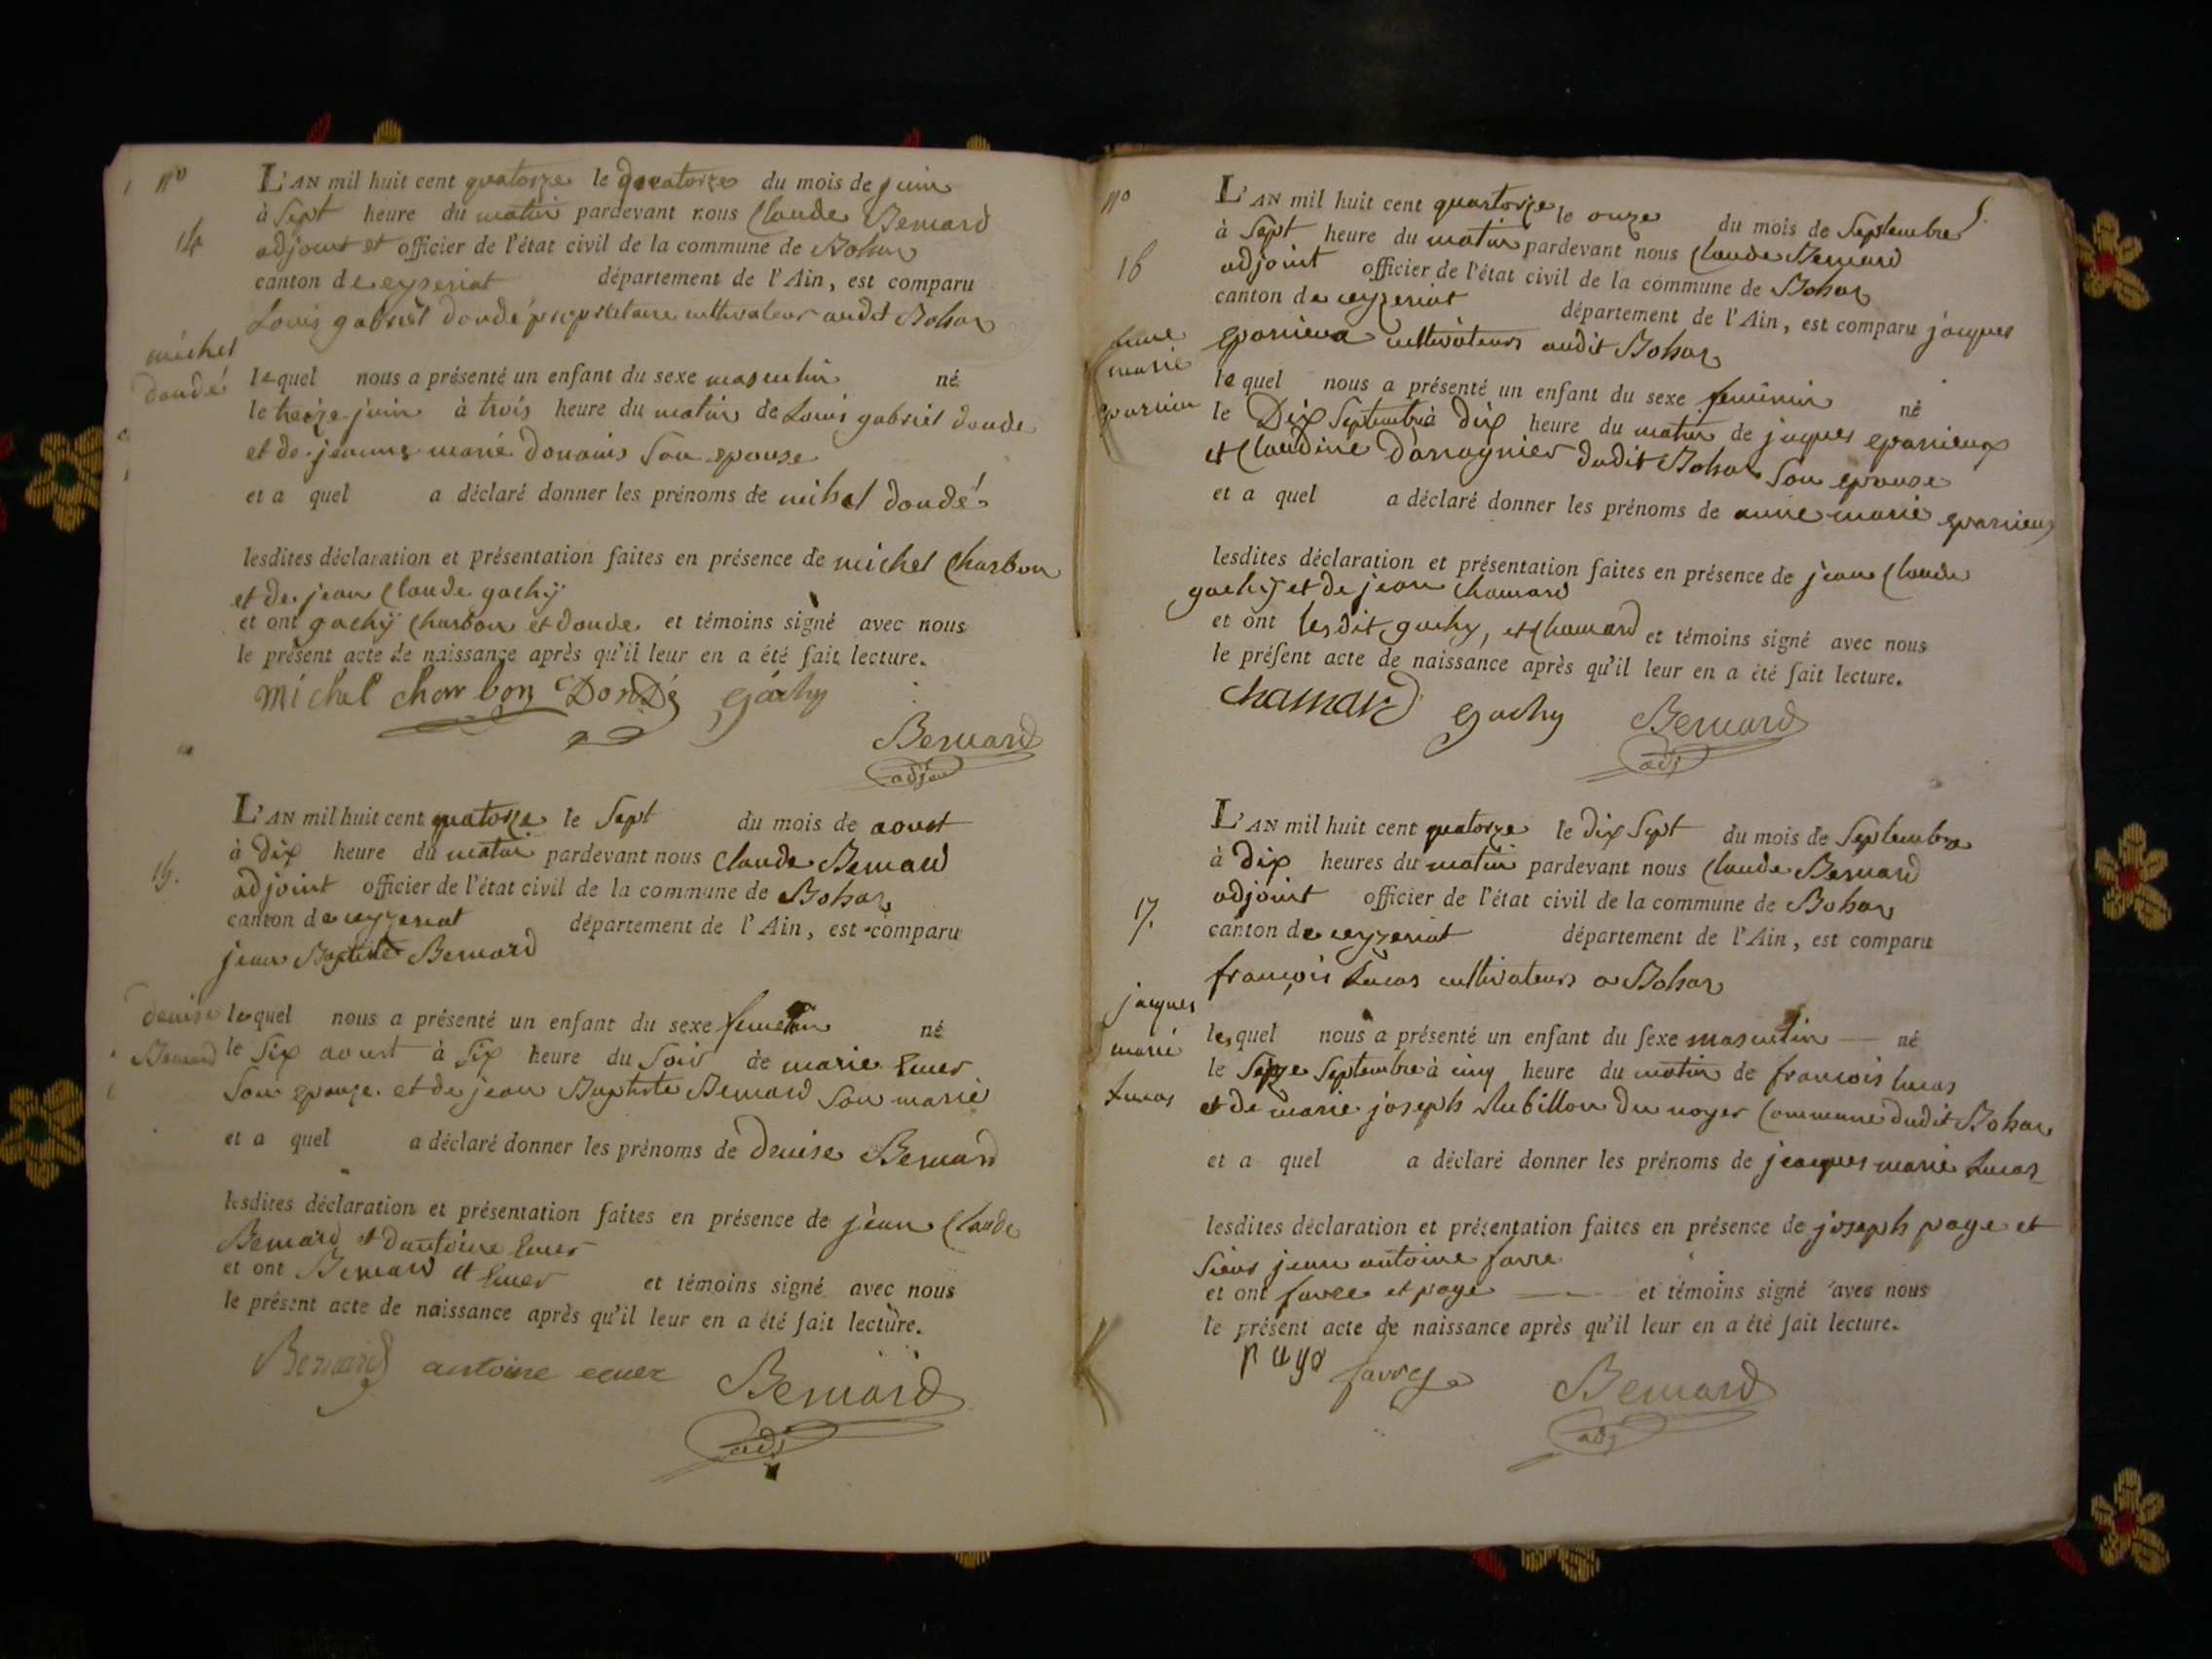 nº
L'AN mil huit cent quatorze le quatorze du mois de juin
à Sept heure du matin pardevant nous Claude Bernard
14
adjoint et officier de l'état civil de la commune de Bohas
canton de ceyzeriat département de l'Ain, est comparu
Louis gabriel dondé propriétaire cultivateur audit Bohas
michel
dondé
lequel nous a présenté un enfant du sexe masculin né
le treize juin à trois heure du matin de Louis gabriel donde
et de jeanne marie donains Son epouse
et a quel a déclaré donner les prénoms de michel dondé
lesdites déclaration et présentation faites en présence de michel Charbon
et de jean Claude gachÿ
et ont gachÿ Charbon et donde et témoins signé avec nous
le présent acte de naissance après qu'il leur en a été fait lecture.
michel charbon Dondé gachy
Bernard
adjoint
L'AN mil huit cent quatorze le Sept du mois de aoust
à dix heure du matin pardevant nous Claude Bernard
15.
adjoint officier de l'état civil de la commune de Bohas
canton de ceyzeriat département de l'Ain, est comparu
jean Baptiste Bernard
denise
Bernard
lequel nous a présenté un enfant du sexe femenin né
le Six aoust à Six heure du Soir de marie Emer
Son epouze et de jean Baptiste Bernard Son marié
et a quel a déclaré donner les prénoms de denise Bernard
lesdites déclaration et présentation faites en présence de jean Claude
Bernard et dantoine Emer
et ont Bernard et Emer et témoins signé avec nous
le présent acte de naissance après qu'il leur en a été fait lecture.
Bernard antoine emer Bernard
adj
nº
L'AN mil huit cent quartorze le onze du mois de Septembre
à Sept heure du matin pardevant nous Claude Bernard
16
adjoint officier de l'état civil de la commune de Bohas
canton de ceyzeriat département de l'Ain, est comparu jacques
eparieux cultivateurs audit Bohas
anne
marie
lequel nous a présenté un enfant du sexe feminin né
le Dix Septembre à dix heure du matin de jaques eparieux
et Claudine Darragnier dudit Bohas Son epouse
et a quel a déclaré donner les prénoms de anne marie eparieux
lesdites déclaration et présentation faites en présence de jean Claude
gachÿ et de jean Chamard
et ont lesdit gachy, et Chamard et témoins signé avec nous
le présent acte de naissance après qu'il leur en a été fait lecture.
chamard gachy Bernard
adj
L'AN mil huit cent quatorze le dix Sept du mois de Septembre
à dix heures du matin pardevant nous Claude Bernard
adjoint officier de l'état civil de la commune de Bohas
17.
canton de ceyzeriat département de l'Ain, est comparu
françois Lucas cultivateurs a Bohas
jacques
marie
Lucas
lequel nous a présenté un enfant du sexe masculin né
le Seize Septembre à cinq heure du matin de francois lucas
et de marie joseph Rubillon du noyer Commune dudit Bohas
et a quel a déclaré donner les prénoms de jeacques marie Lucas
lesdites déclaration et présentation faites en présence de joseph page et
Sieur jean antoine favre
et ont favre et page et témoins signé avec nous
le présent acte de naissance après qu'il leur en a été fait lecture.
page favre Bernard
adj